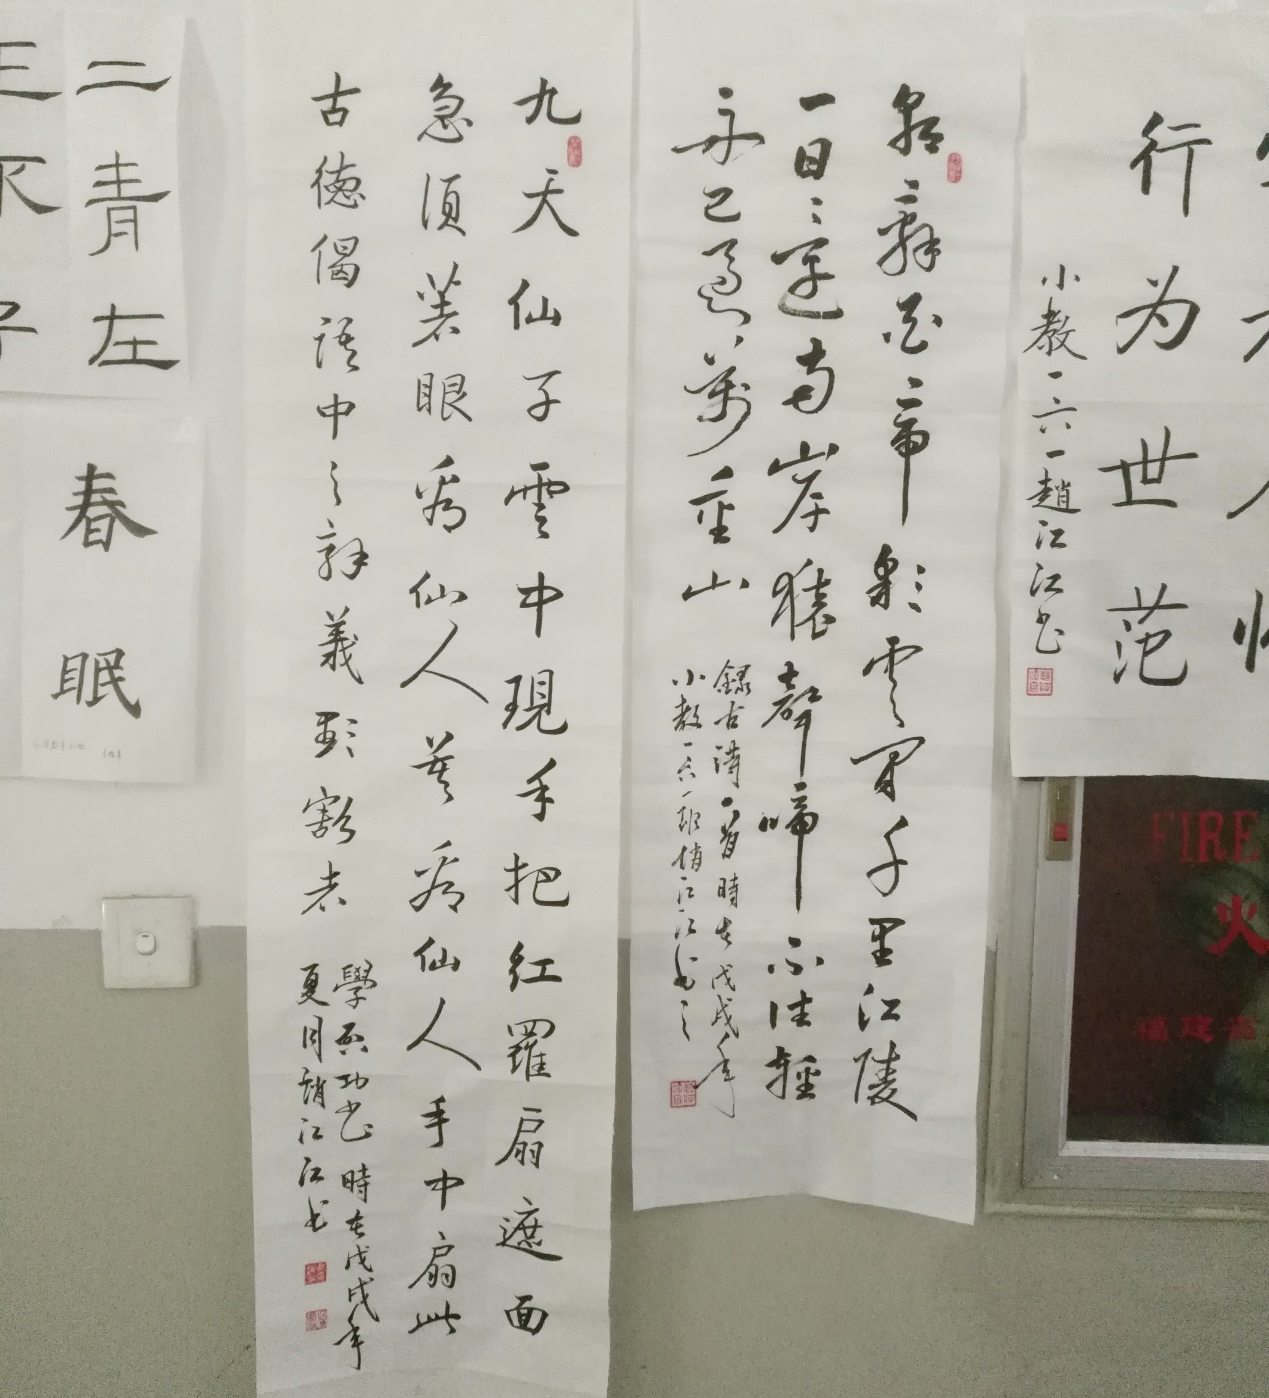 行为世范
小教一六一趙江江书
朝辭白帝彩雲间千里江陵
一日還两岸猿聲啼不住輕
舟已過萬重山
錄古詩一首時在戊戌年
小教一六一班趙江江书之
九天仙子雲中現手把紅羅扇遮面
急須著眼看仙人莫看仙人手中扇此
古德偈語中之辞義彰豁者
學啟功书時在戊戌年
夏月趙江江书
二青左
春眠
FIRE
火
福建